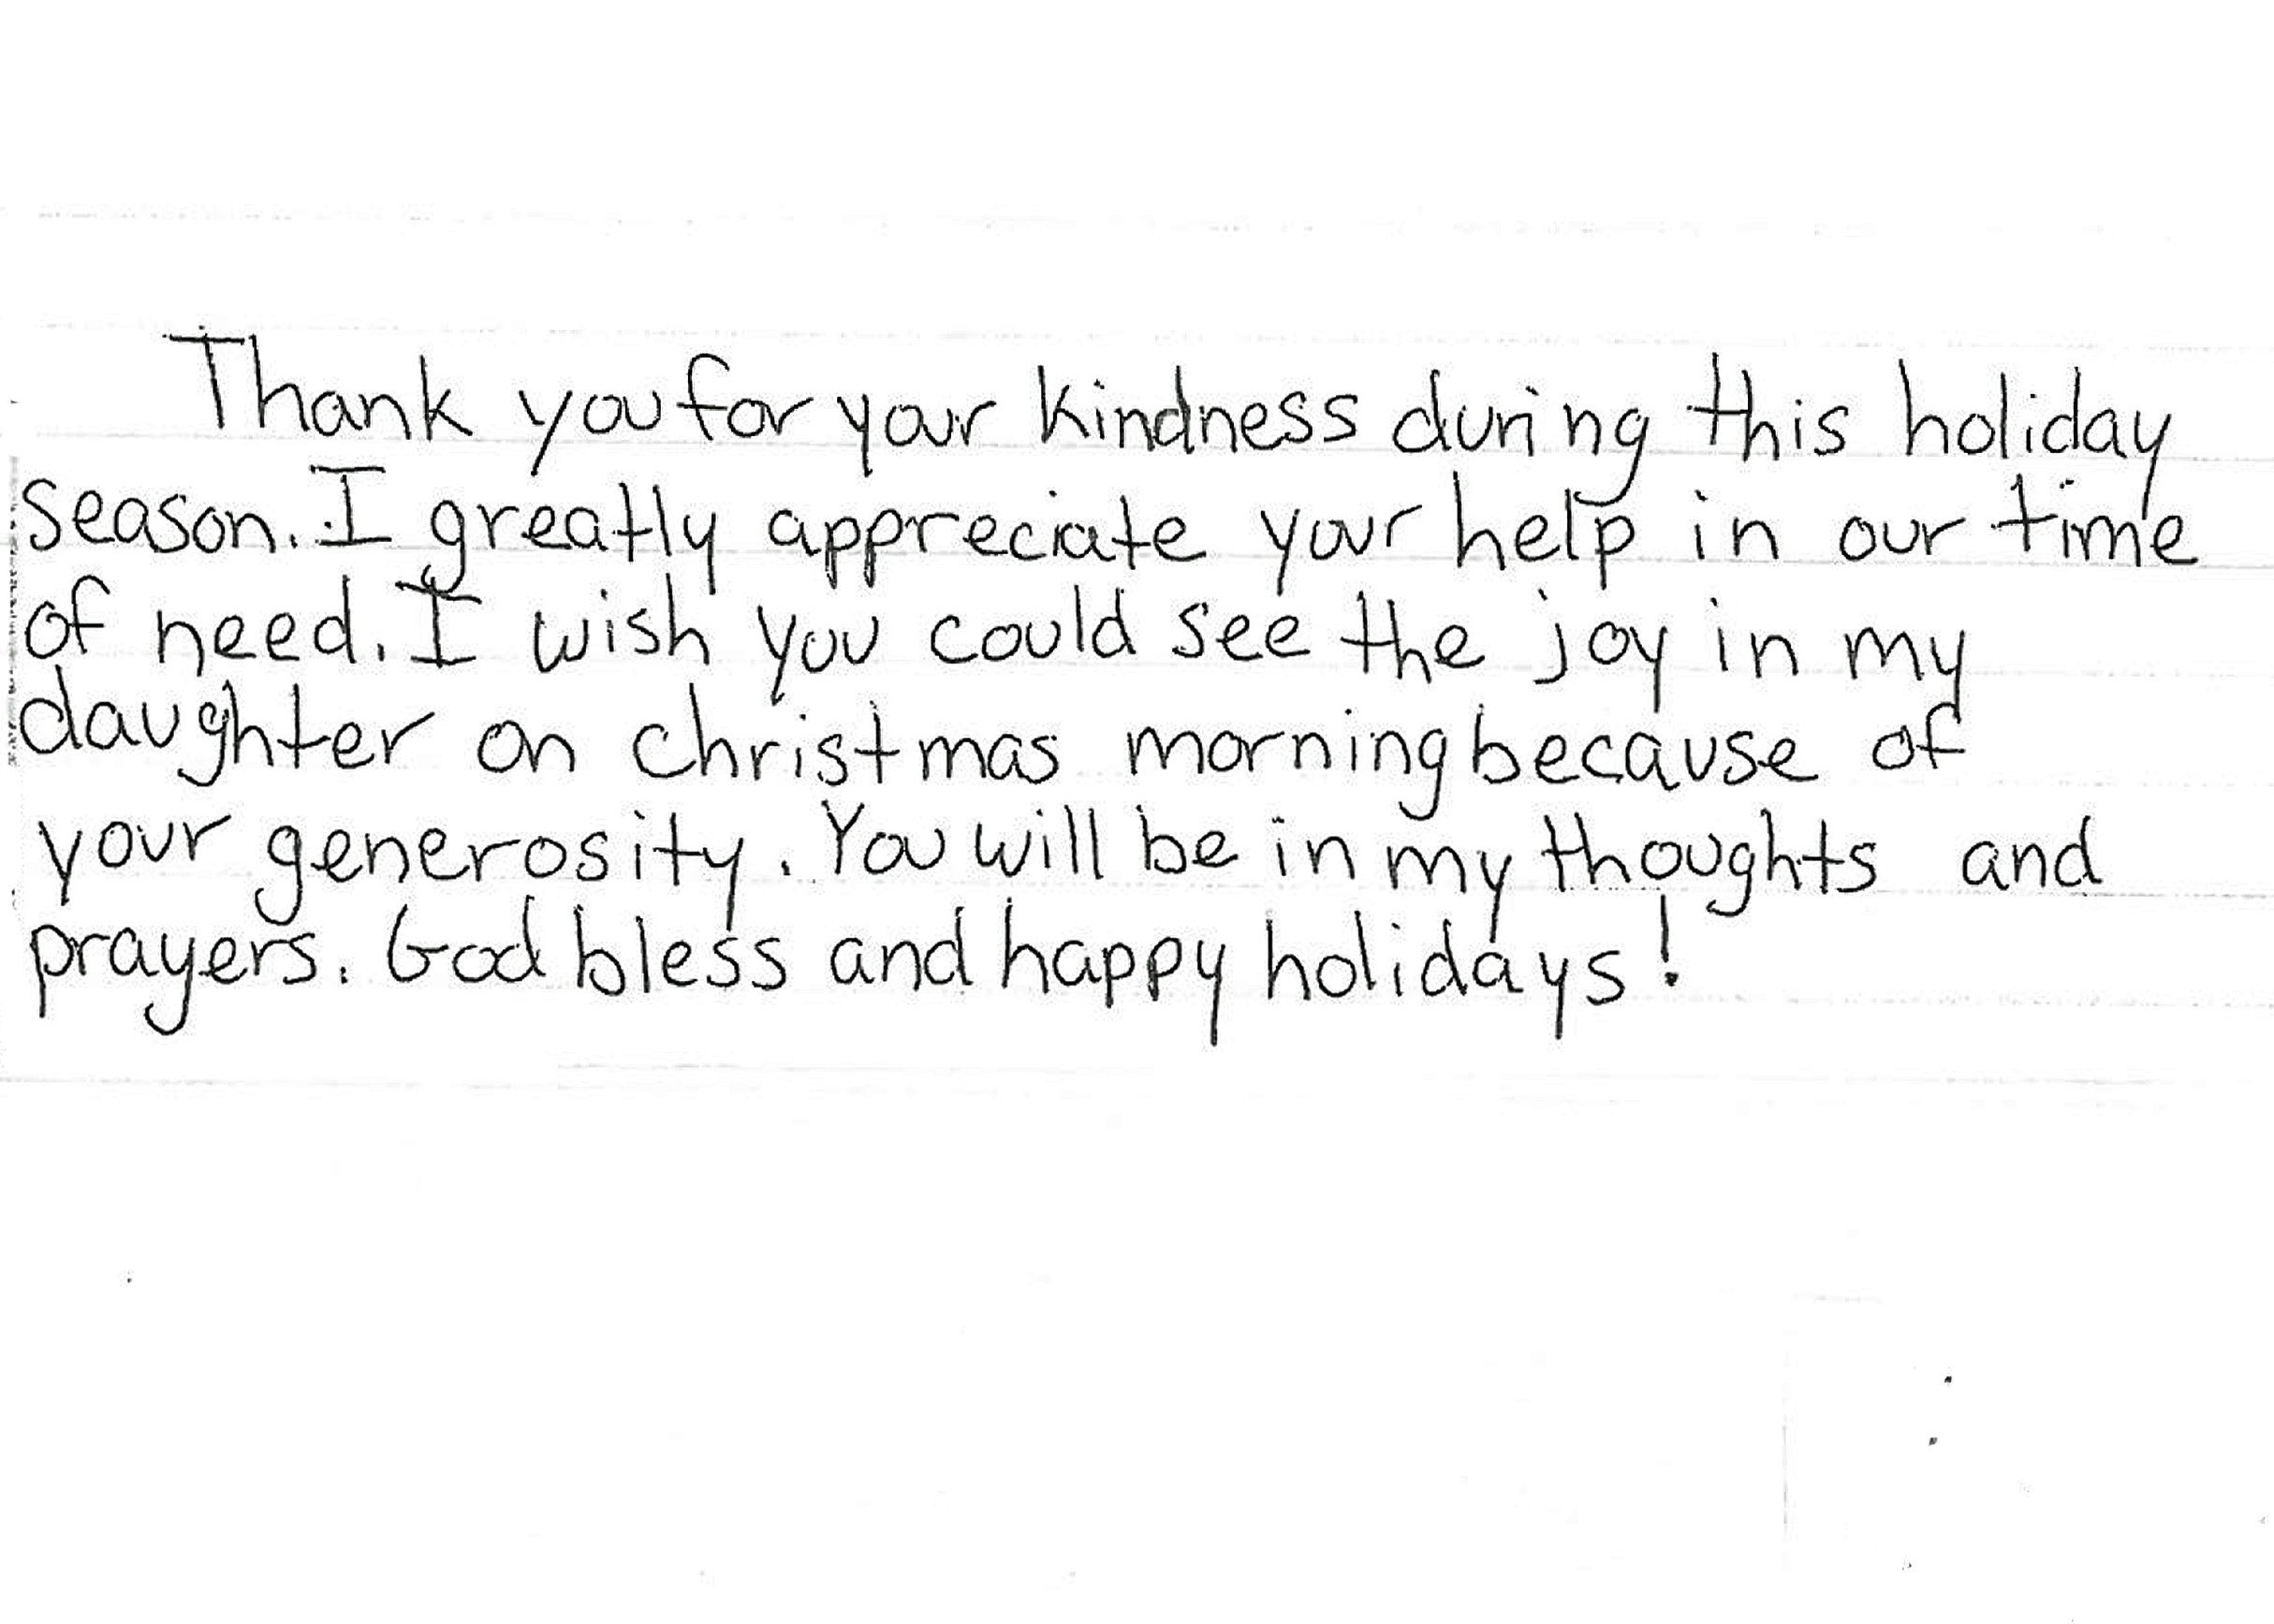 Thank you for your kindness during this holiday
season. I greatly appreciate your help in our time
of need. I wish you could see the joy in my
daughter on christmas morning because of
your generosity. You will be in my thoughts and
prayers. God bless and happy holidays!